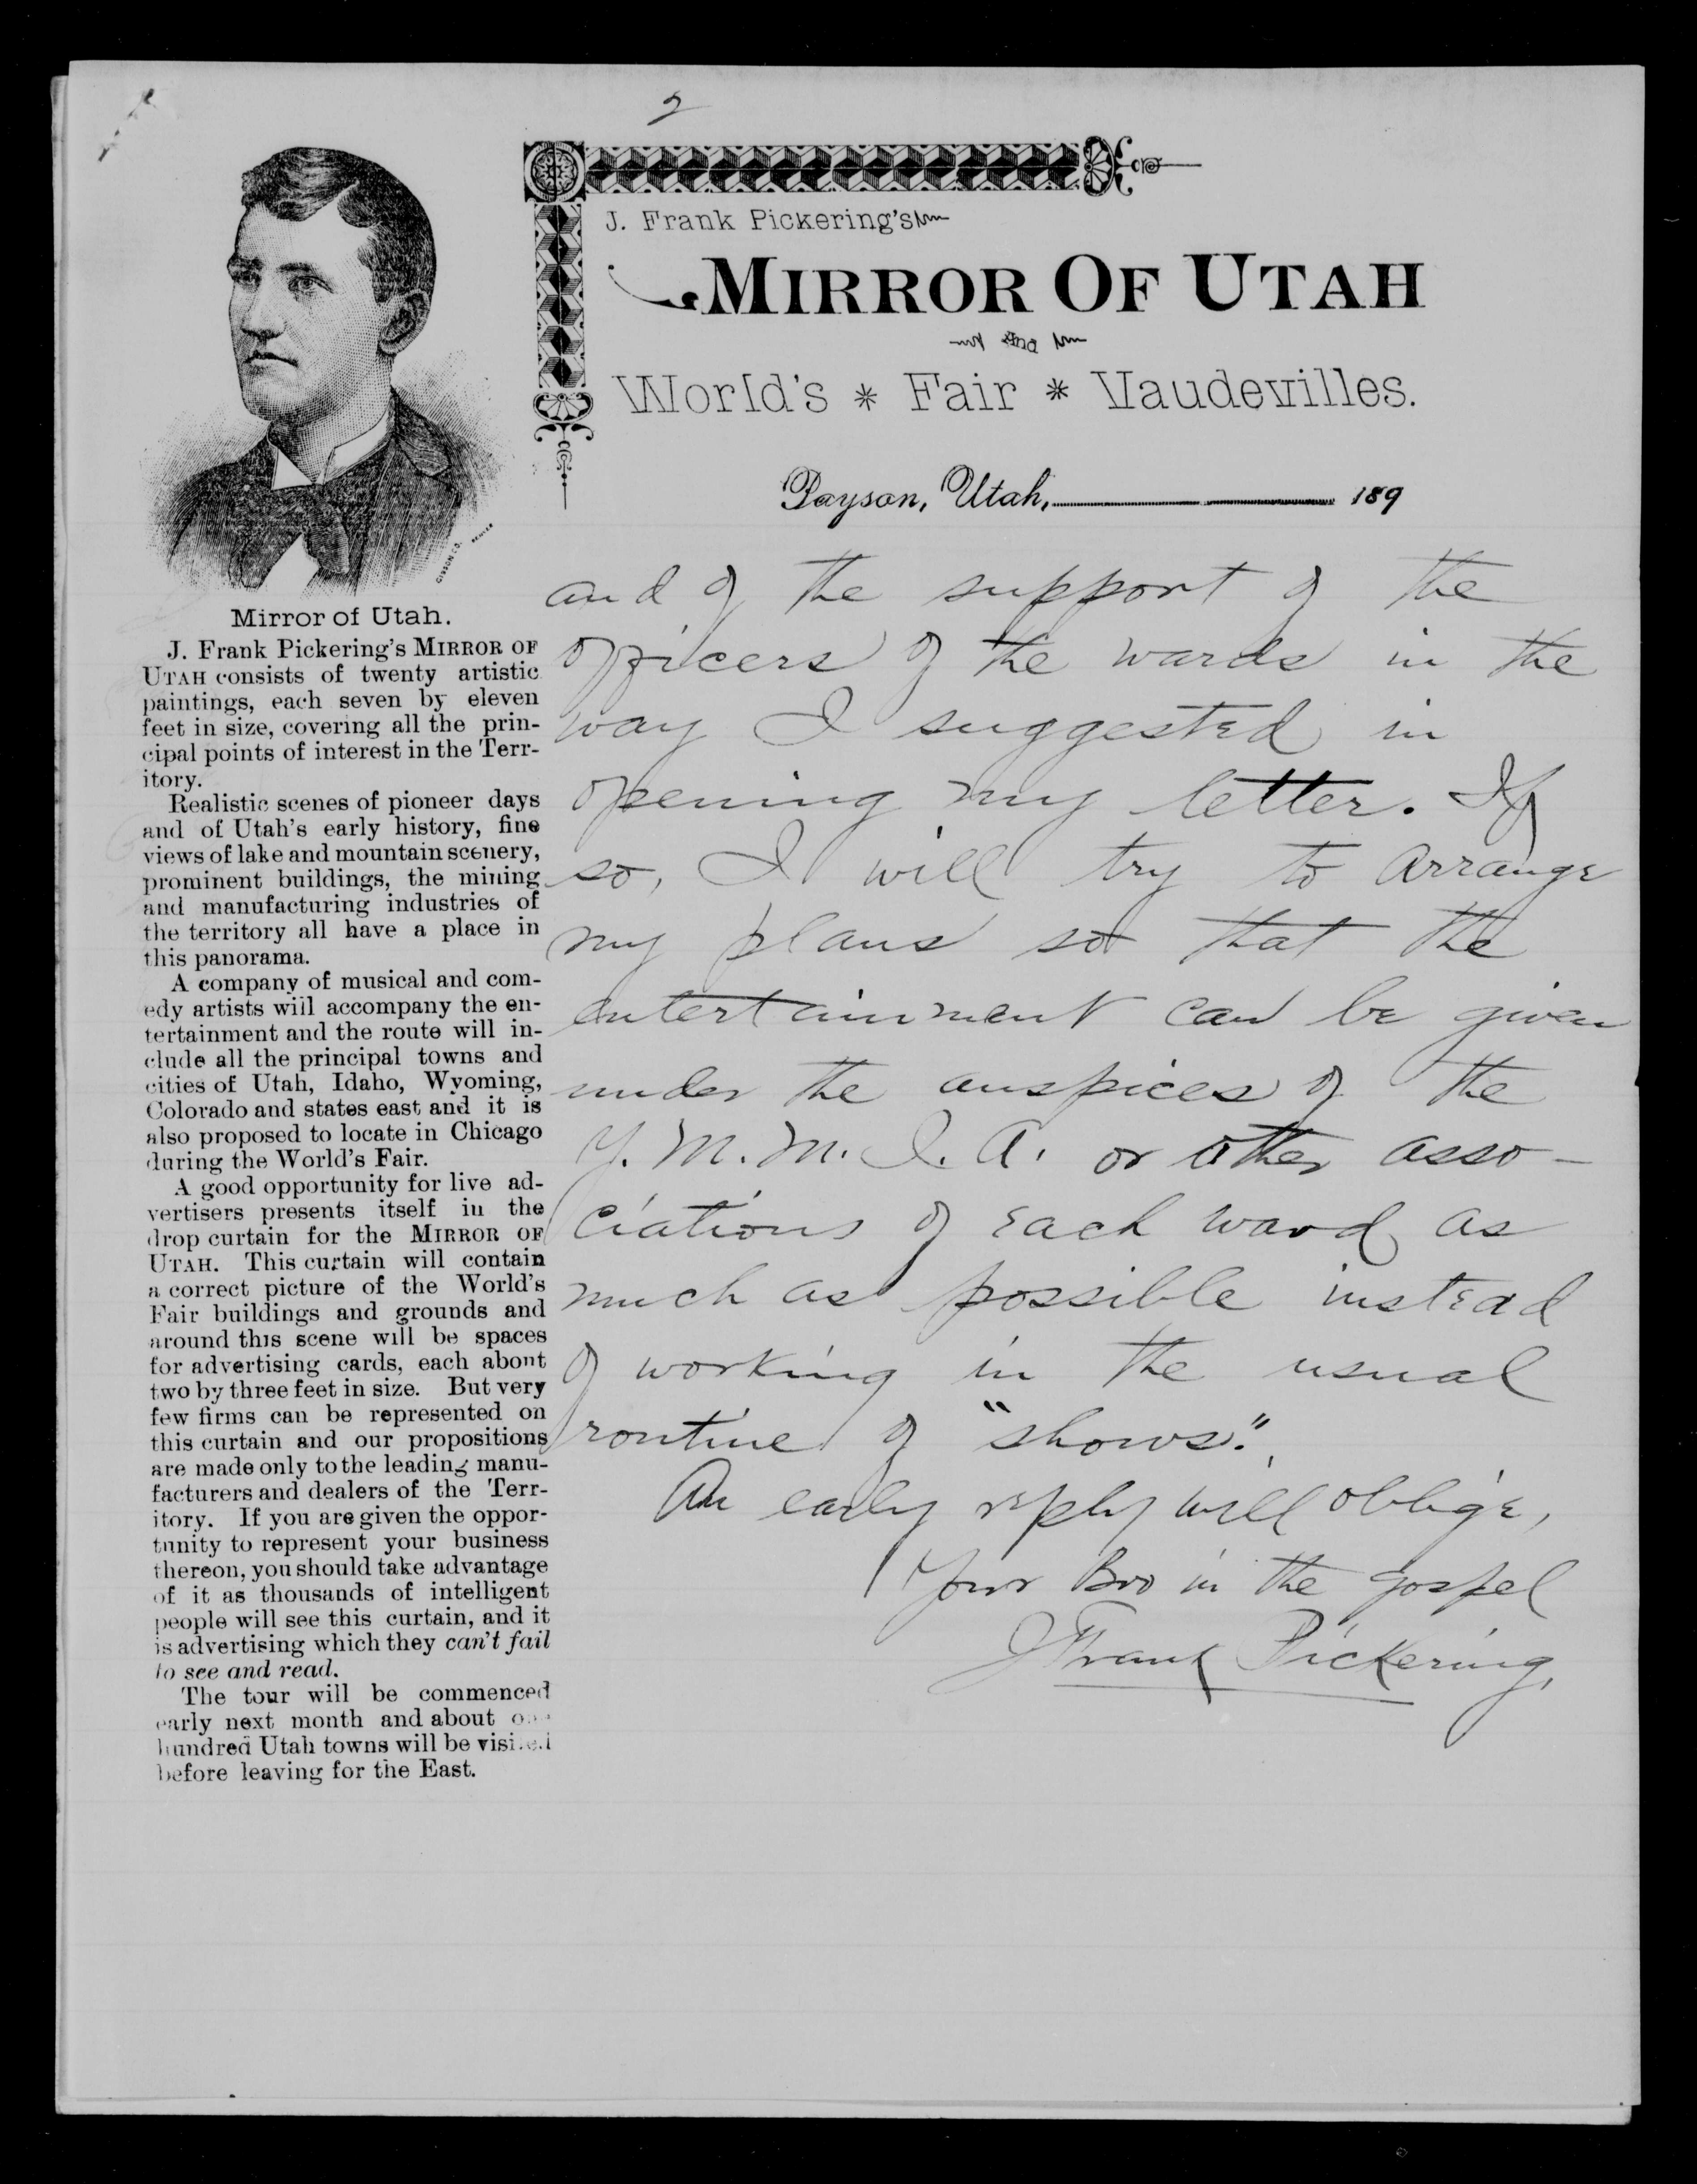 2
J. Frank Pickering's
MIRROR OF UTAH
and
World's * Fair * Vaudevilles.
Payson, Utah, 189
GIBSON CO. DENVER
Mirror of Utah.
J. Frank Pickering's MIRROR OF
UTAH consists of twenty artistic
paintings, each seven by eleven
feet in size, covering all the prin-
cipal points of interest in the Terr-
itory.
Realistic scenes of pioneer days
and of Utah's early history, fine
views of lake and mountain scenery,
prominent buildings, the mining
and manufacturing industries of
the territory all have a place in
this panorama.
A company of musical and com-
edy artists will accompany the en-
tertainment and the route will in-
clude all the principal towns and
cities of Utah, Idaho, Wyoming,
Colorado and states east and it is
also proposed to locate in Chicago
during the World's Fair.
A good opportunity for live ad-
vertisers presents itself in the
drop curtain for the MIRROR OF
UTAH. This curtain will contain
a correct picture of the World's
Fair buildings and grounds and
around this scene will be spaces
for advertising cards, each about
two by three feet in size. But very
few firms can be represented on
this curtain and our propositions
are made only to the leading manu-
facturers and dealers of the Terr-
itory. If you are given the oppor-
tunity to represent your business
thereon, you should take advantage
of it as thousands of intelligent
people will see this curtain, and it
is advertising which they can't fail
to see and read.
The tour will be commenced
early next month and about one
hundred Utah towns will be visited
before leaving for the East.
and of the support of the
officers of the wards in the
way I suggested in
opening my letter. If
so, I will try to arrange
my plans so that the
entertainment can be given
under the auspices of the
Y. M. M. I. A. or other asso-
ciations of each ward as
much as possible instead
of working in the usual
routine of "shows".
An early reply will oblige,
Your Bro in the gospel
J Frank Pickering,